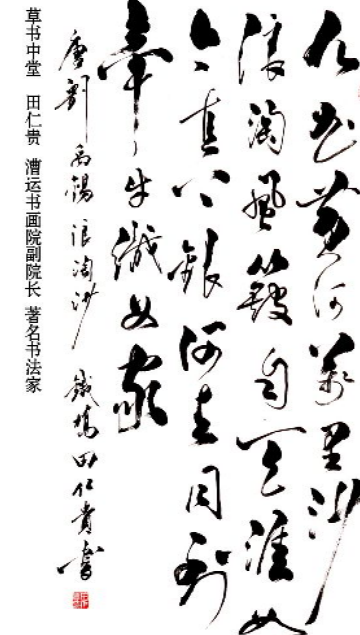 九曲黄河萬里沙
浪淘風簸自天涯如
今直上銀河去同到
牽牛織女家
唐劉禹錫浪淘沙 田仁貴書
草书中堂 田仁贵 漕运书画院副院长 著名书法家